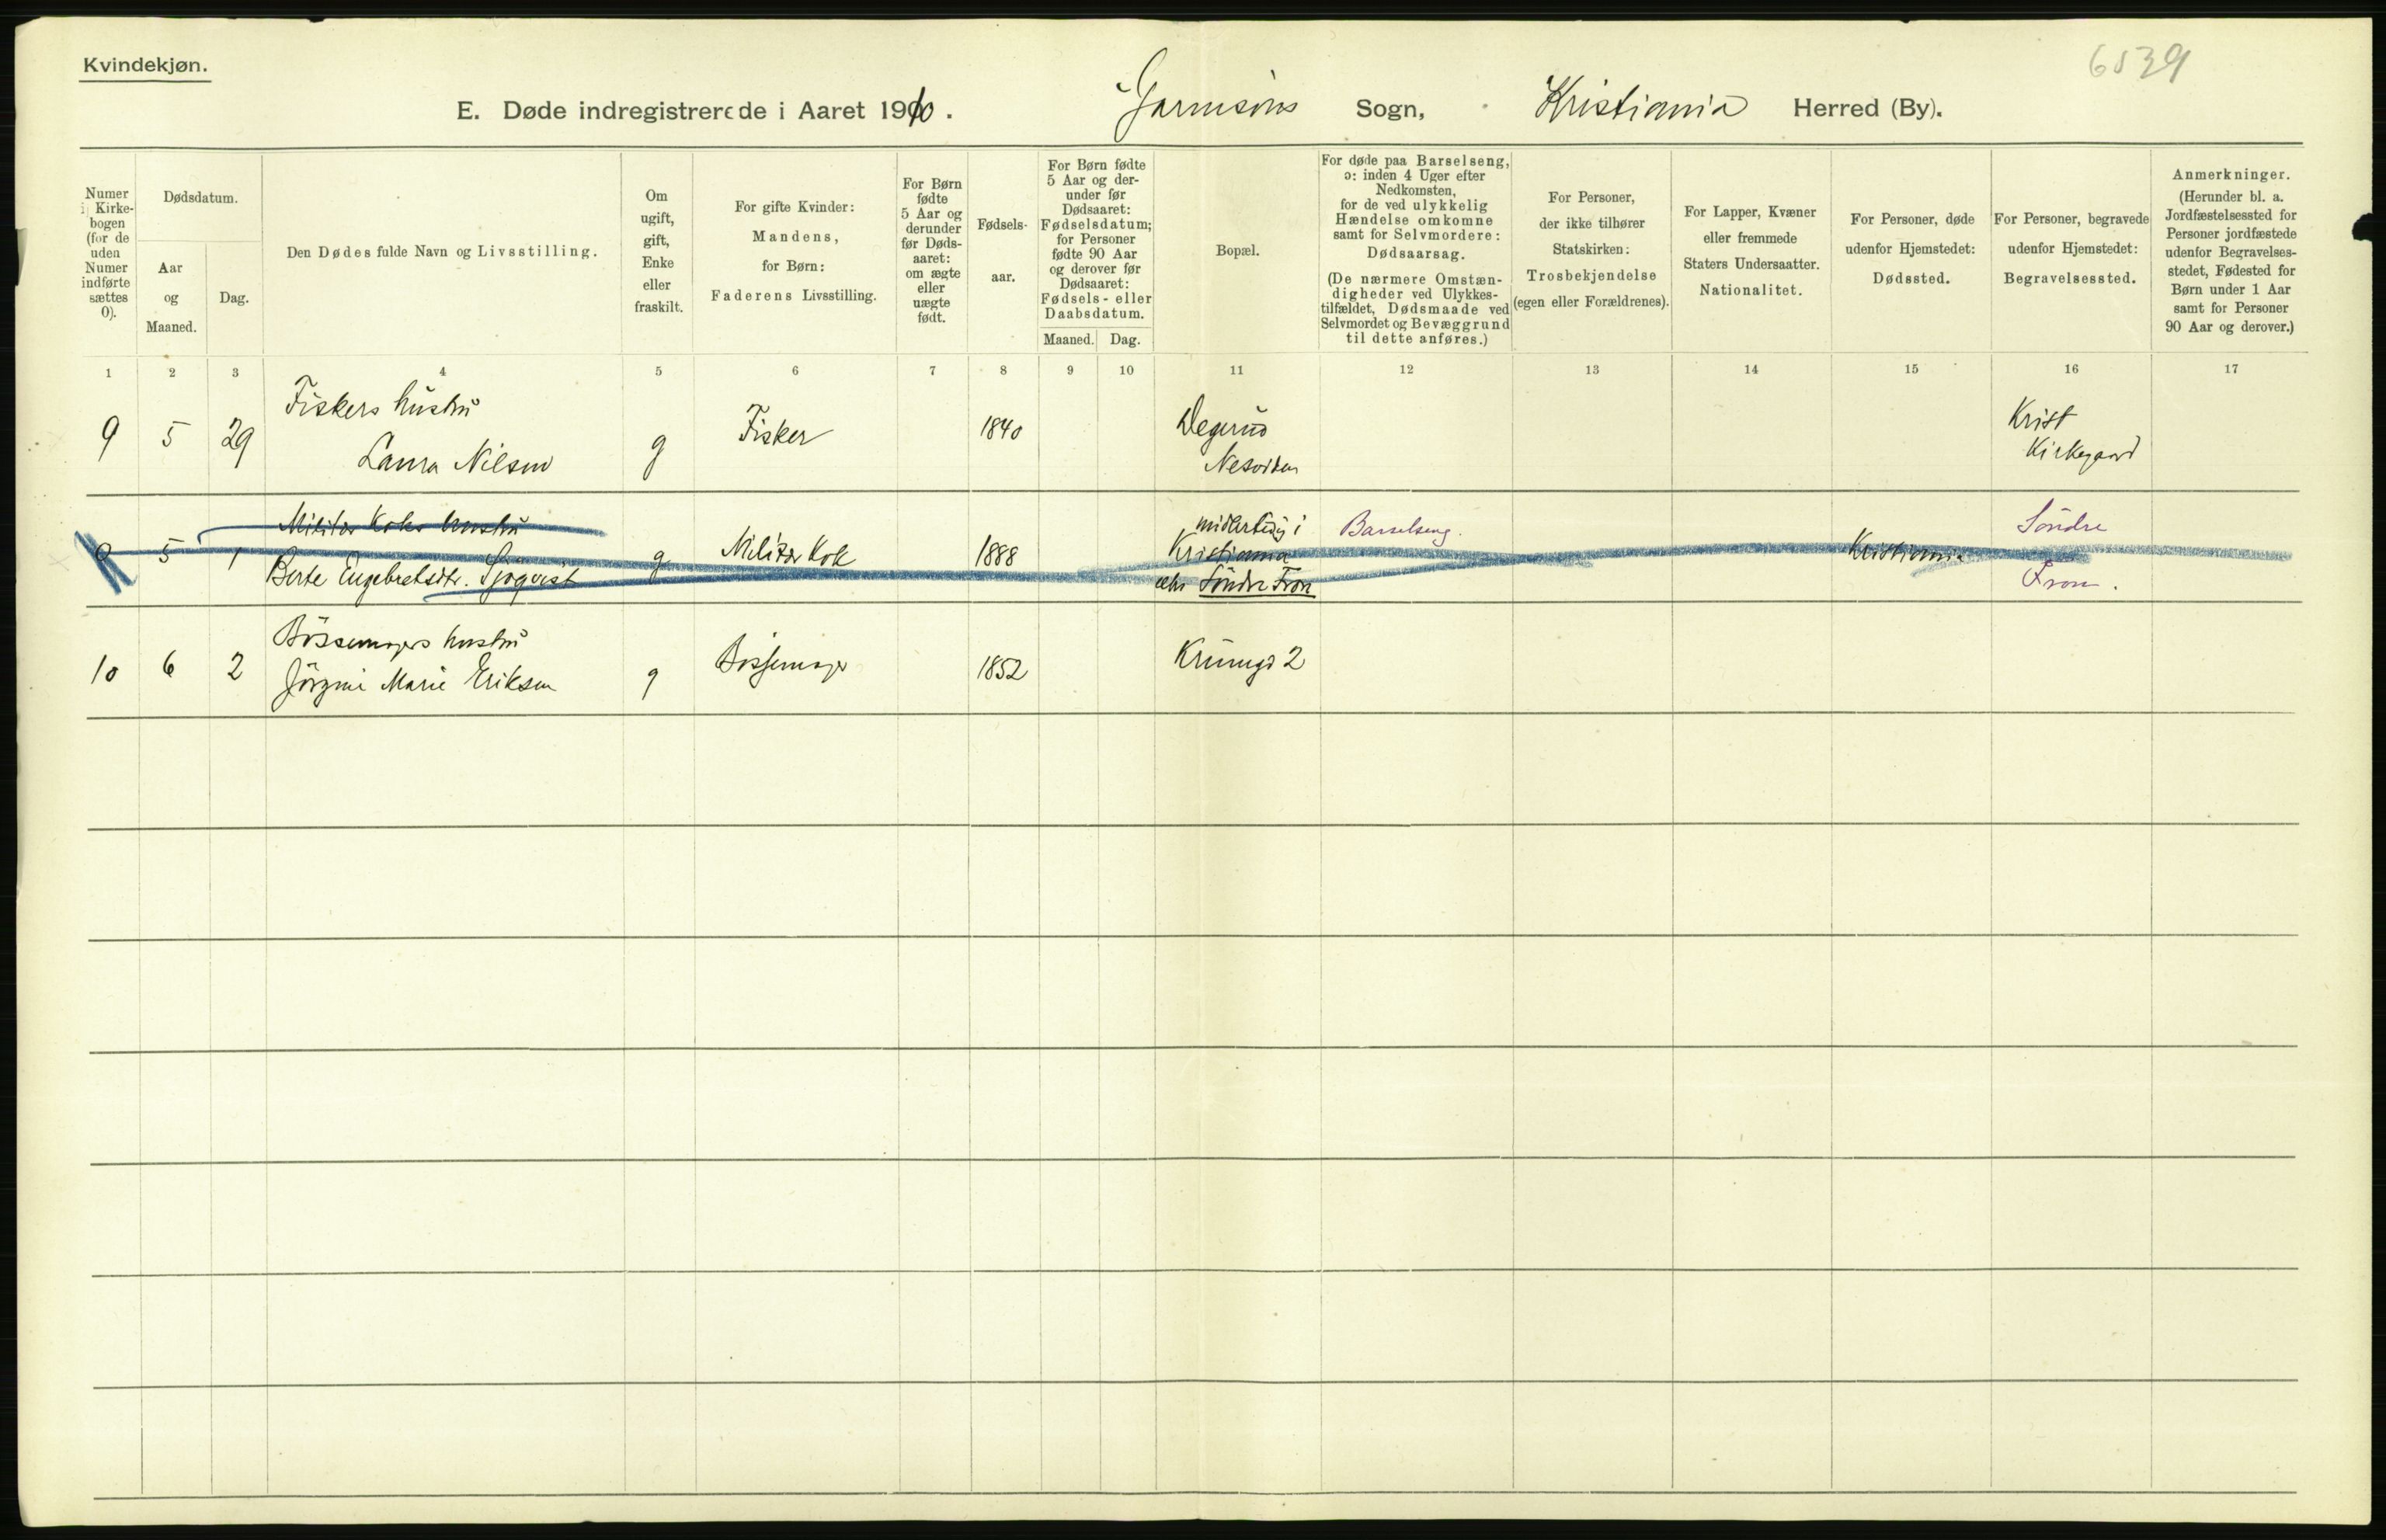 Kvindekjøn.
6539
E. Døde indregistrerede i Aaret 1910. Garnisons Sogn, Kristiania Herred (By).
Numer i Kirkebogen (for de uden Numer indførte sættes 0).
Dødsdatum.
Aar og Maaned.
Dag.
Den Dødes fulde Navn og Livsstilling.
Om ugift, gift, Enke eller fraskilt.
For gifte Kvinder: Mandens, for Børn: Faderens Livsstilling.
For Børn fødte 5 Aar og derunder før Dødsaaret: om ægte eller uægte født.
Fødselsaar.
For Børn fødte 5 Aar og derunder før Dødsaaret: Fødselsdatum; for Personer fødte 90 Aar og derover før Dødsaaret: Fødsels- eller Daabsdatum.
Maaned. Dag.
Bopæl.
For døde paa Barselseng, ɔ: inden 4 Uger efter Nedkomsten, for de ved ulykkelig Hændelse omkomne samt for Selvmordere: Dødsaarsag.
(De nærmere Omstændigheder ved Ulykkestilfældet, Dødsmaade ved Selvmordet og Bevæggrund til dette anføres.)
For Personer, der ikke tilhører Statskirken: Trosbekjendelse (egen eller Forældrenes).
For Lapper, Kvæner eller fremmede Staters Undersaatter. Nationalitet.
For Personer, døde udenfor Hjemstedet: Dødssted.
For Personer, begravede udenfor Hjemstedet: Begravelsessted.
Anmerkninger.
(Herunder bl. a. Jordfæstelsessted for Personer jordfæstede udenfor Begravelsesstedet, Fødested for Børn under 1 Aar samt for Personer 90 Aar og derover.)
1 2 3 4 5 6 7 8 9 10 11 12 13 14 15 16 17
Fiskers hustru
9 5 29 Laura Nilsen g Fisker 1840 Degerud Nesodden Krist Kirkegaard
Militær Koks hustru
5 1 Berte Engebretsdtr. Sjøqvist g Militær Kok 1888 midlertidig i Kristiania Söndre Fron Barselseng. Kristiania Söndre Fron.
Bössemagers hustru
10 6 2 Jörgine Marie Eriksen g Bössemager 1852 Krumgd 2